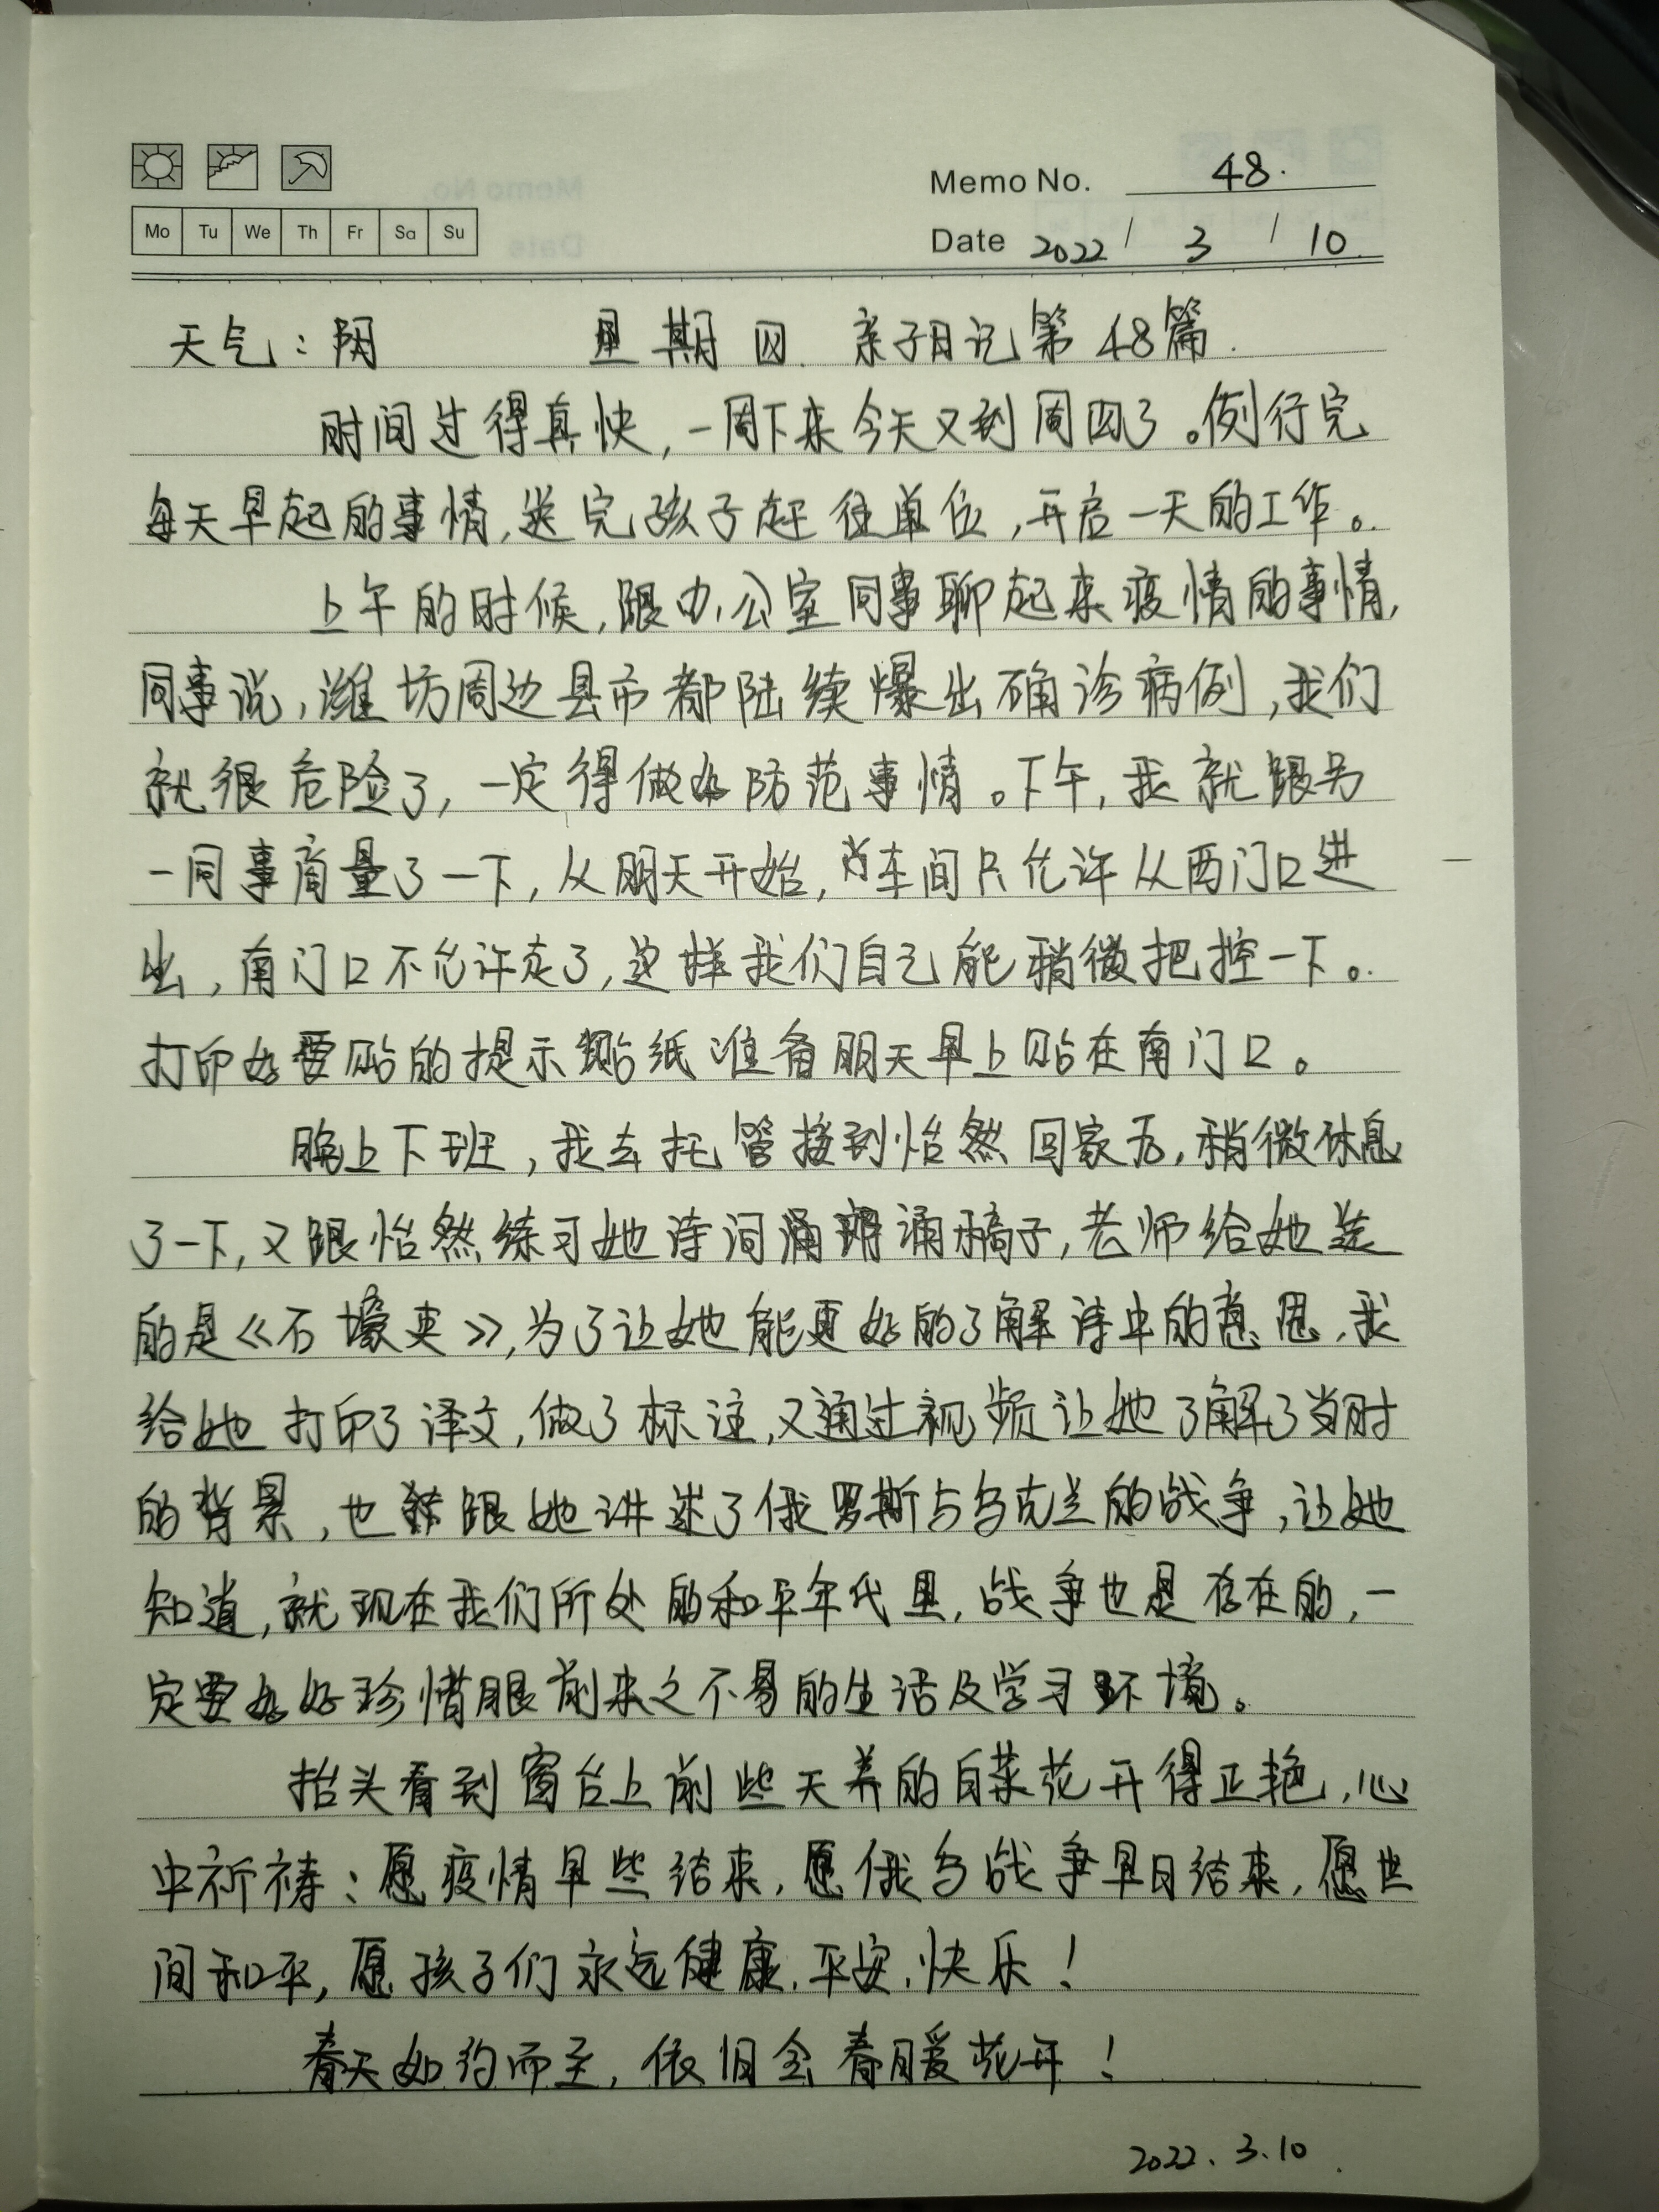 Memo No. 48.
Mo Tu We Th Fr Sa Su
Date 2022 / 3 / 10.
天气：阴 星期四. 亲子日记第48篇.
时间过得真快,一周下来今天又到周四了。例行完
每天早起的事情,送完孩子赶往单位,开启一天的工作。
上午的时候,跟办公室同事聊起来疫情的事情,
同事说,潍坊周边县市都陆续爆出确诊病例,我们
就很危险了,一定得做好防范事情。下午,我就跟另
一同事商量了一下,从明天开始,车间只允许从西门口进
出,南门口不允许走了,这样我们自己能稍微把控一下。
打印好要贴的提示贴纸准备明天早上贴在南门口。
晚上下班,我去托管接到怡然回家后,稍微休息
了一下,又跟怡然练习她诗词朗诵稿子,老师给她选
的是《石壕吏》,为了让她能更好的了解诗中的意思,我
给她打印了译文,做了标注,又通过视频让她了解了当时
的背景,也跟她讲述了俄罗斯与乌克兰的战争,让她
知道,就现在我们所处的和平年代里,战争也是存在的,一
定要好好珍惜眼前来之不易的生活及学习环境。
抬头看到窗台上前些天养的白菜花开得正艳,心
中祈祷：愿疫情早些结束,愿俄乌战争早日结束,愿世
间和平,愿孩子们永远健康、平安、快乐！
春天如约而至,依旧会春暖花开！
2022.3.10.